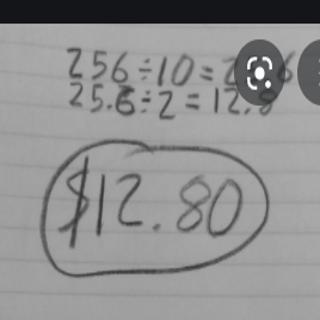 256÷10=25.6
25.6÷2=12.8
$12.80